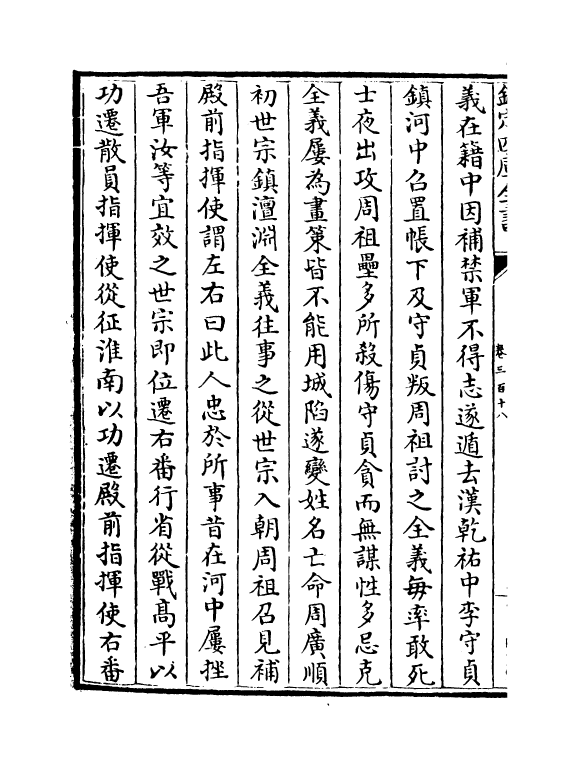 欽定四庫全書
卷三百十八
義在籍中因補禁軍不得志遂遁去漢乾祐中李守貞
鎮河中召置帳下及守貞叛周祖討之全義每率敢死
士夜出攻周祖壘多所殺傷守貞貪而無謀性多忌克
全義屢為畫策皆不能用城陷遂變姓名亡命周廣順
初世宗鎮澶淵全義往事之從世宗入朝周祖召見補
殿前指揮使謂左右曰此人忠於所事昔在河中屢挫
吾軍汝等宜效之世宗即位遷右番行省從戰髙平以
功遷散員指揮使從征淮南以功遷殿前指揮使右番